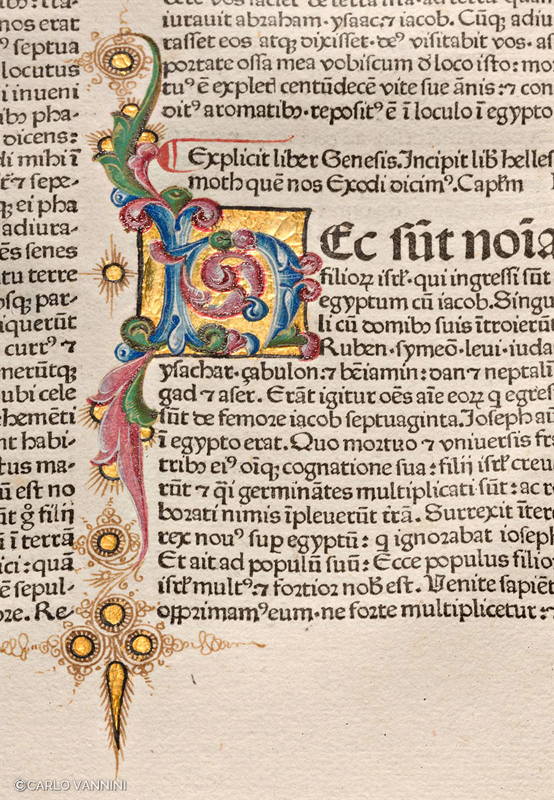 nos erat
ꝰ septua
locutus
i inueni
ibꝫ pha-
dicens:
di mihi ī
⁊ sepe-
qꝫ ei pha
adiura-
ēs senes
tu terre
osqꝫ par-
iquerūt
currꝰ ⁊
nerūtqꝫ
ubi cele
ehemēti
nt habi-
tus ma-
ū est no
ūt g̊ filij
ū ī terrā
ici:quā
ē sepul-
ore. Re-
iurauit abraham.ysaac.⁊ iacob. Cūqꝫ adiu
rasset eos atqꝫ dixisset.deꝰ visitabit vos.as
portate ossa mea vobiscum đ loco isto:mo
tuꝰ ē expletꝭ centūdecē vite sue ānis:⁊ con
ditꝰ aromatibꝫ.repositꝰ ē ī loculo ī egypto
Explicit liber Genesis.Incipit lib̄ helles
moth quē nos Exodi dicimꝰ.Capłm I
HEc sūt noīa
filioꝝ isrł.qui ingressi sūnt
egyptum cū iacob.Singu
li cū domibꝫ suis ītroierūt
Ruben.symeō.leui.iuda
ysachar.çabulon.⁊ bēiamin:dan ⁊ neptalī
gad ⁊ aser. Erāt igitur oēs aīe eoꝝ q egres
sūt de femore iacob septuaginta.Joseph aū
ī egypto erat. Quo mortuo ⁊ vniuersis frа
tribꝫ eiꝰ oīqꝫ cognatione sua:filij isrł creue
rūt ⁊ q̄i germinātes multiplicati sūt:ac ro
borati nimis īpleuerūt trā. Surrexit īterea
rex nouꝰ sup egyptū:q ignorabat ioseph
Et ait ad populū suū:Ecce populus filio
isrł multꝰ:⁊ fortior nob̄ est. Venite sapiēt
opprimamꝰ eum.ne forte multiplicetur:⁊
©CARLO VANNINI